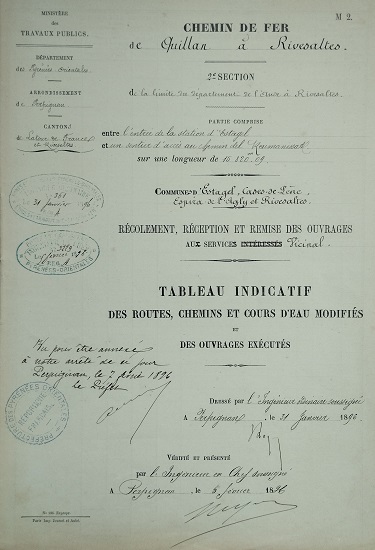 M 2.
MINISTÈRE
des
TRAVAUX PUBLICS.
DÉPARTEMENT
des Pyrénées Orientales
ARRONDISSEMENT
de Perpignan
CANTONS
de Latour de France
et Rivesaltes
CHEMIN DE FER
de Quillan à Rivesaltes.
2e SECTION
de la limite du département de l'Aude à Rivesaltes
PARTIE COMPRISE
entre l'entrée de la station d'Estagel
et un sentier d'accès au chemin del
sur une longueur de
Communes d'Estagel, Cases-de-Pène,
Espira de l'Agly et Rivesaltes
RÉCOLEMENT, RÉCEPTION ET REMISE DES OUVRAGES
AUX SERVICES INTÉRESSÉS Vicinal
TABLEAU INDICATIF
DES ROUTES, CHEMINS ET COURS D'EAU MODIFIÉS
ET
DES OUVRAGES EXÉCUTÉS
Vu pour être annexé
à notre arrêté de ce jour
Perpignan, le 7 Août 1896
Le Préfet
DRESSÉ par l'Ingénieur ordinaire soussigné
A Perpignan, le 31 Janvier 1896
VÉRIFIÉ ET PRÉSENTÉ
par l'Ingénieur en Chef soussigné
A Perpignan le 5 Février 1896
31 janvier 96
PYRÉNÉES-ORIENTALES
PRÉFECTURE DES PYRÉNÉES ORIENTALES
RÉPUBLIQUE FRANÇAISE